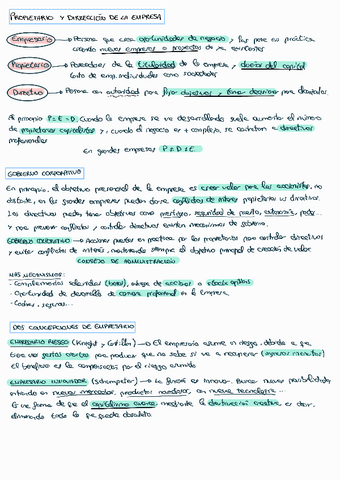 PROPIETARIO Y DIRECCIÓN DE LA EMPRESA
Empresario → Persona que crea oportunidades de negocio, las pone en práctica
creando nuevas empresas o proyectos de ya existentes
Propietario → Poseedores de la titularidad de la empresa, dueños del capital
tanto de emp. individuales como sociedades
Directivo → Persona con autoridad para fijar objetivos y tomar decisiones para
Al principio P = E = D. Cuando la empresa se va desarrollando suele aumentar el número
de propietarios capitalistas y, cuando el negocio es + complejo, se contratan a directivos
profesionales
En grandes empresas P ≠ D ≠ E
GOBIERNO CORPORATIVO
En principio, el objetivo principal de la empresa es crear valor para los accionistas, no
obstante, en las grandes empresas pueden darse conflictos de interés propietarios vs directivos.
Los directivos pueden tener objetivos como prestigio, seguridad de puesto, autonomía, poder...
y para prevenir conflictos y controlar directivos existen mecanismos de gobierno.
GOBIERNO CORPORATIVO → Acciones puestas en práctica por los propietarios para controlar directivos
y evitar conflictos de interés, manteniendo siempre el objetivo principal de creación de valor
CONSEJO DE ADMINISTRACIÓN
MÁS MECANISMOS:
- Complementos salariales (bonus), entrega de acciones o stock options
- Oportunidad de desarrollo de carrera profesional en la empresa
- Coches, seguros...
DOS CONCEPCIONES DE EMPRESARIO
EMPRESARIO RIESGO (Knight y Cantillon) → El empresario asume un riesgo, debido a que
tiene unos gastos ciertos para producir que no sabe si va a recuperar (ingresos inciertos)
El beneficio es la compensación por el riesgo asumido
EMPRESARIO INNOVADOR (Schumpeter) → La función es innovar. Buscar nuevas posibilidades,
entrando en nuevos mercados, productos novedosos, con nueva tecnología...
Es una forma de que el capitalismo avance mediante la destrucción creativa, es decir,
eliminando todo lo que quede obsoleto.